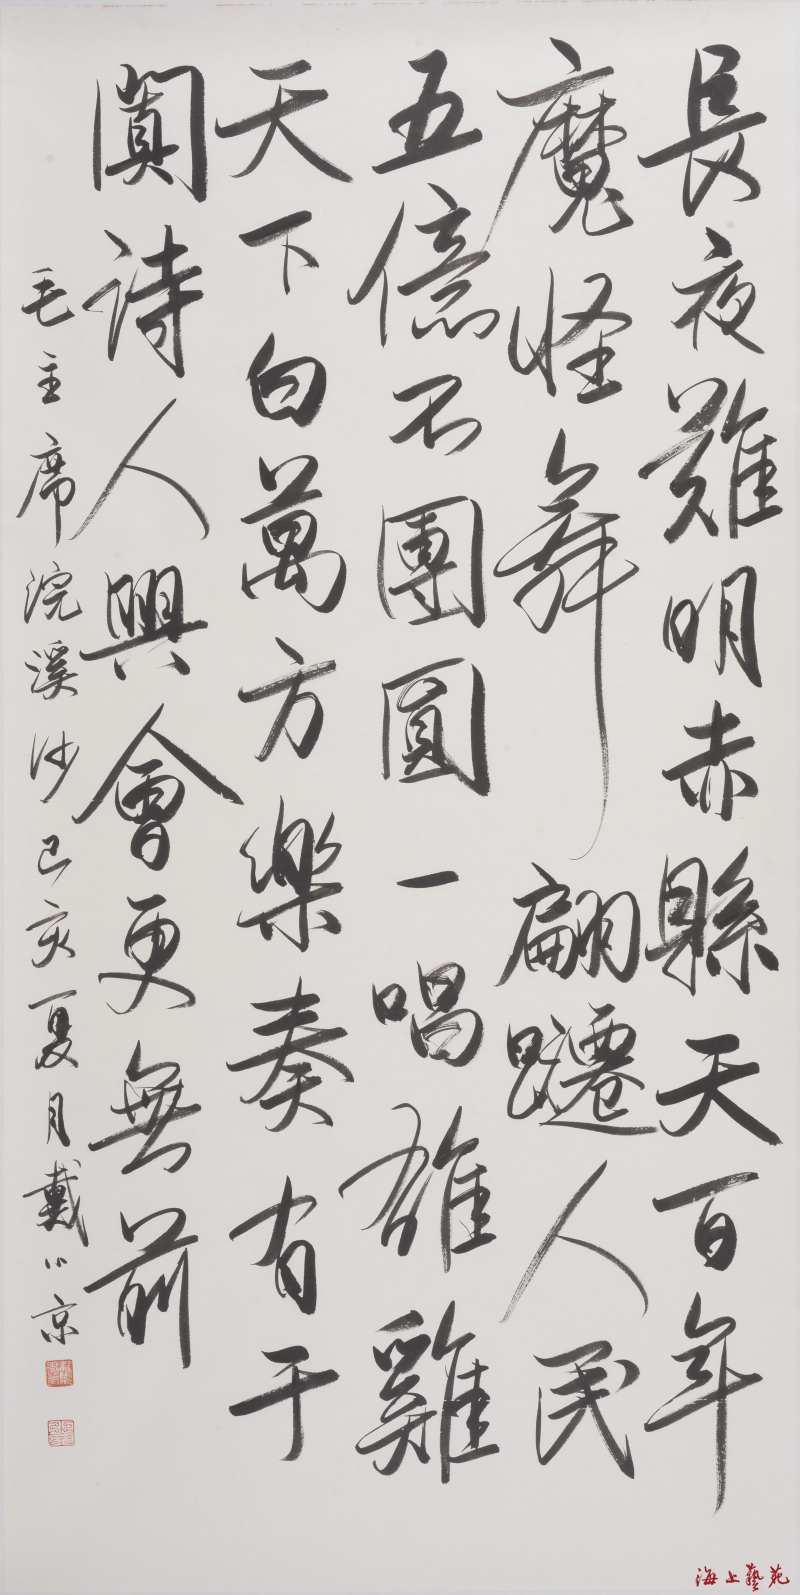 長夜難明赤縣天百年
魔怪舞翩躚人民
五億不團圓一唱雄雞
天下白萬方樂奏有于
闐詩人興會更無前
毛主席浣溪沙己亥夏月戴小京
海上藝苑